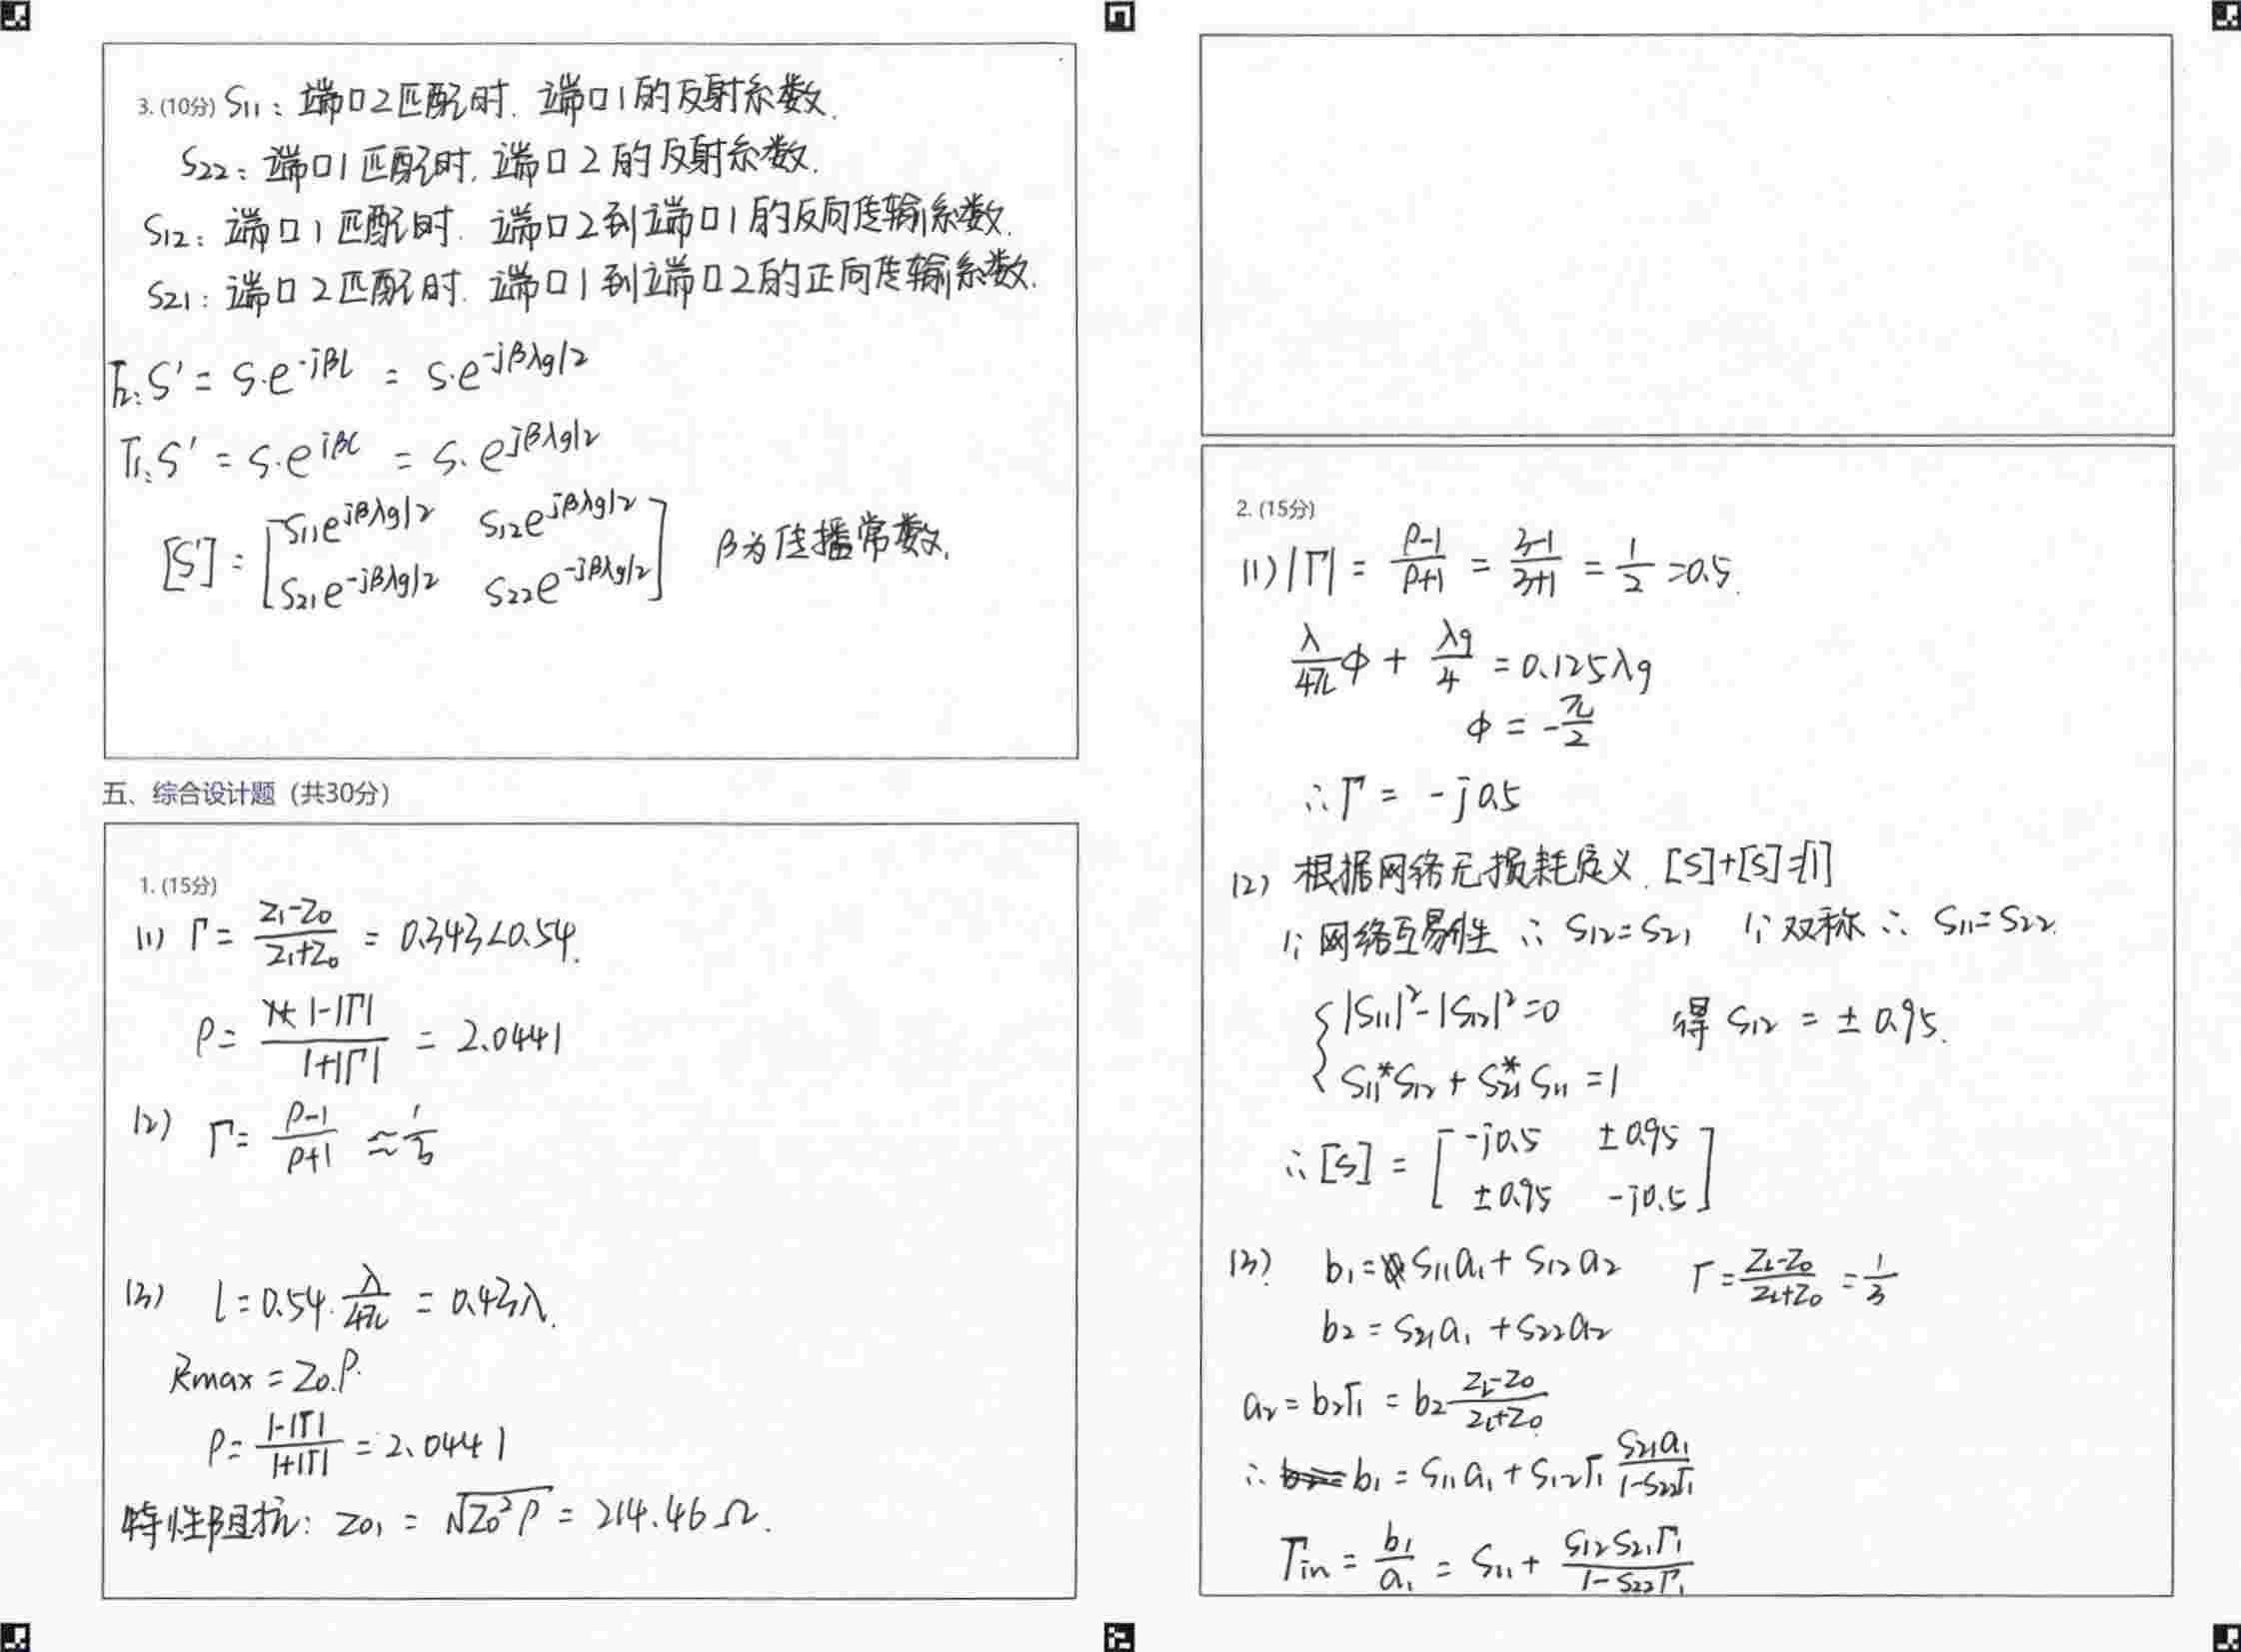 3. (10分) S11：端口2匹配时. 端口1的反射系数.
S22：端口1匹配时. 端口2的反射系数.
S12：端口1匹配时. 端口2到端口1的反向传输系数.
S21：端口2匹配时. 端口1到端口2的正向传输系数.
T2: S' = S·e^-jβl = S·e^-jβλg/2
T1: S' = S·e^jβl = S·e^jβλg/2
[S'] = [S11e^jβλg/2 S12e^jβλg/2
S21e^-jβλg/2 S22e^-jβλg/2] β为传播常数.
五、综合设计题（共30分）
1. (15分)
(1) Γ = (Z1-Z0)/(Z1+Z0) = 0.343∠0.54.
ρ = (1-|Γ|)/(1+|Γ|) = 2.0441
(2) Γ = (ρ-1)/(ρ+1) ≈ 1/3
(3) l = 0.54·λ/4π = 0.43λ.
Rmax = Z0·ρ.
ρ = (1-|Γ|)/(1+|Γ|) = 2.0441
特性阻抗: Z01 = √(Z0²ρ) = 214.46Ω.
2. (15分)
(1) |Γ| = (ρ-1)/(ρ+1) = (3-1)/(3+1) = 1/2 = 0.5.
λ/4π φ + λg/4 = 0.125λg
φ = -π/2
∴Γ = -j0.5
(2) 根据网络无损耗定义. [S]+[S]=[1]
∵网络互易性 ∴ S12=S21 ∵对称 ∴ S11=S22.
{ |S11|²-|S12|²=0 得 S12 = ±0.95.
S11*S12 + S21*S11 = 1
∴[S] = [-j0.5 ±0.95
±0.95 -j0.5]
(3) b1 = S11a1 + S12a2 Γ = (ZL-Z0)/(ZL+Z0) = 1/3
b2 = S21a1 + S22a2
a2 = b2Γ1 = b2 (ZL-Z0)/(ZL+Z0)
∴ b1 = S11a1 + S12Γ1 S21a1/(1-S22Γ1)
Γin = b1/a1 = S11 + S12S21Γ1/(1-S22Γ1)